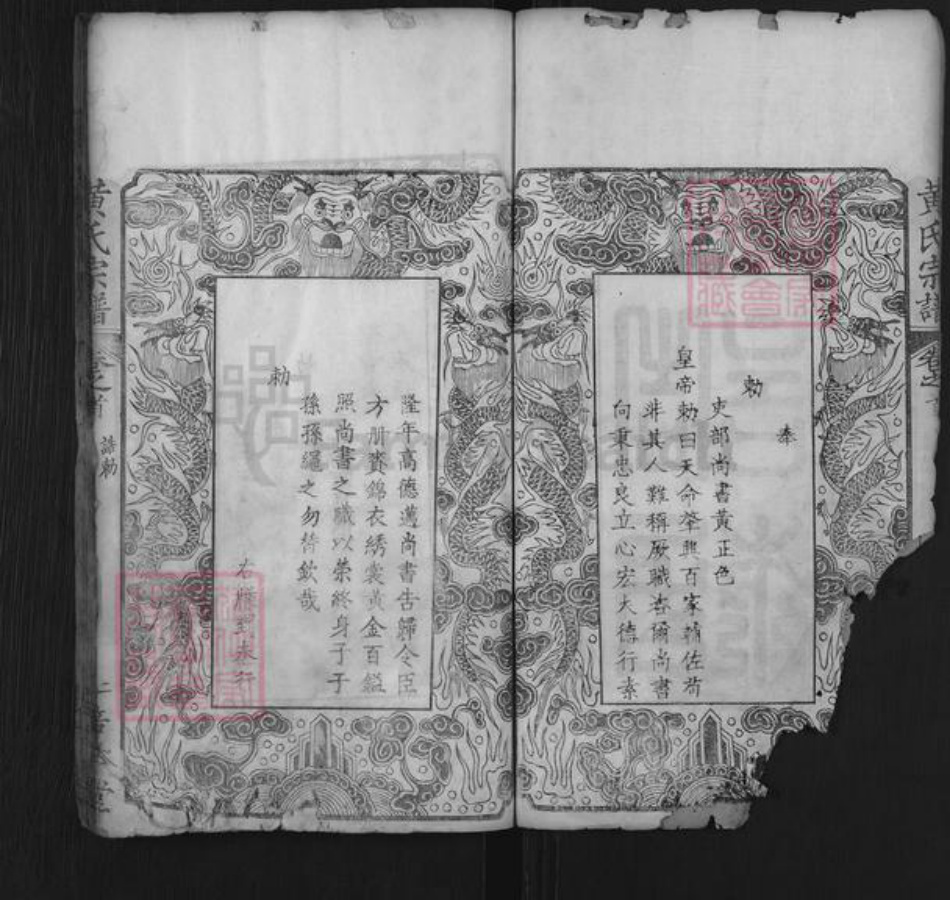 奉
勅
吏部尚書黃正色
皇帝勅曰天命肇興百家輔佐苟
非其人難稱厥職咨爾尚書
向秉忠良立心宏大德行素
隆年高德邁尚書告歸今臣
方册賚錦衣綉裳黃金百鎰
照尚書之職以榮終身子子
孫孫繩之勿替欽哉
勅
右牒
黃氏宗譜
卷之首
誥勅
黃氏宗譜